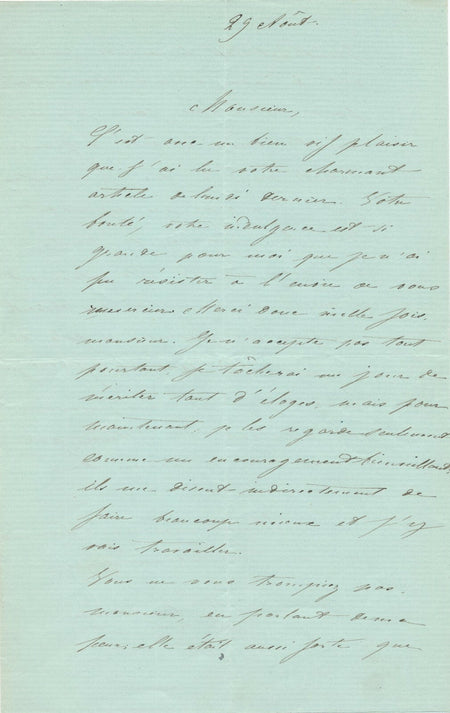 29 Août.
Monsieur,
C'est avec un bien vif plaisir
que j'ai lu votre charmant
article de lundi dernier. Votre
bonté, votre indulgence est si
grande pour moi que je n'ai
pu résister à l'envie de vous
remercier. Merci donc mille fois,
monsieur. Je n'accepte pas tout
pourtant, je tâcherai un jour de
mériter tant d'éloges, mais pour
maintenant, je les regarde seulement
comme un encouragement bienveillant,
ils me disent indirectement de
faire beaucoup mieux et j'y
vais travailler.
Vous ne vous trompiez pas,
monsieur, en parlant de ma
peur; elle était aussi forte que